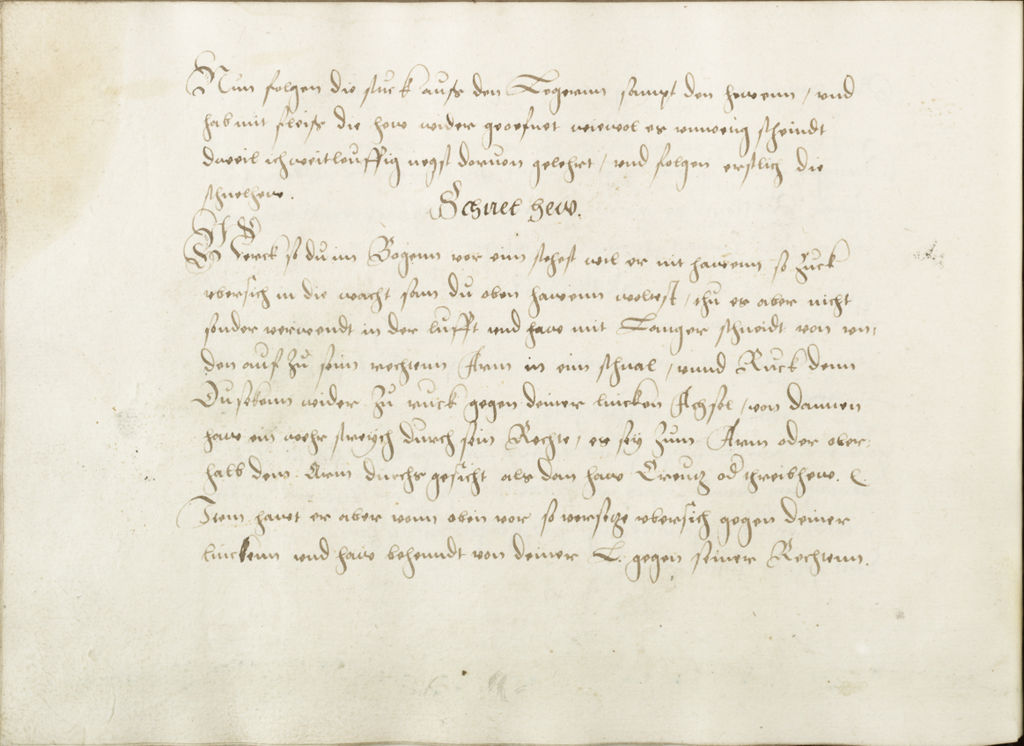 Nun folgen die stuck aufs den Legernn sampt den hewenn / vnd
hab mit fleiss die hew wider geoefnet wiewol es vnnoetig scheindt
dweil ich weitleuffig negst daruon gelehrt / vnd folgen erstlich die
schnelhew.
Schnel hew.
Merck so du im Bogenn vor eim stehest wil er nit hawenn so Zuck
vbersich in die wacht sam du oben hawenn wolest / thu es aber nicht
sonder verwendt in der lufft vnd haw mit Langer schneidt von vn-
den auf zu sein rechtenn Arm in eim schnal / vnnd Ruck denn
Dusekenn wider zu ruck gegen deiner lincken Achsel / von dannen
haw ein wehr streych durch sein Rechte / es sey zum Arm oder ober-
halb dem Arm durchs gesicht als dan haw Creutz od threibhew.
Item hawt er aber vonn oben vor so versetze vbersich gegen deiner
linckenn vnd haw behenndt von deiner L. gegen seiner Rechtenn.